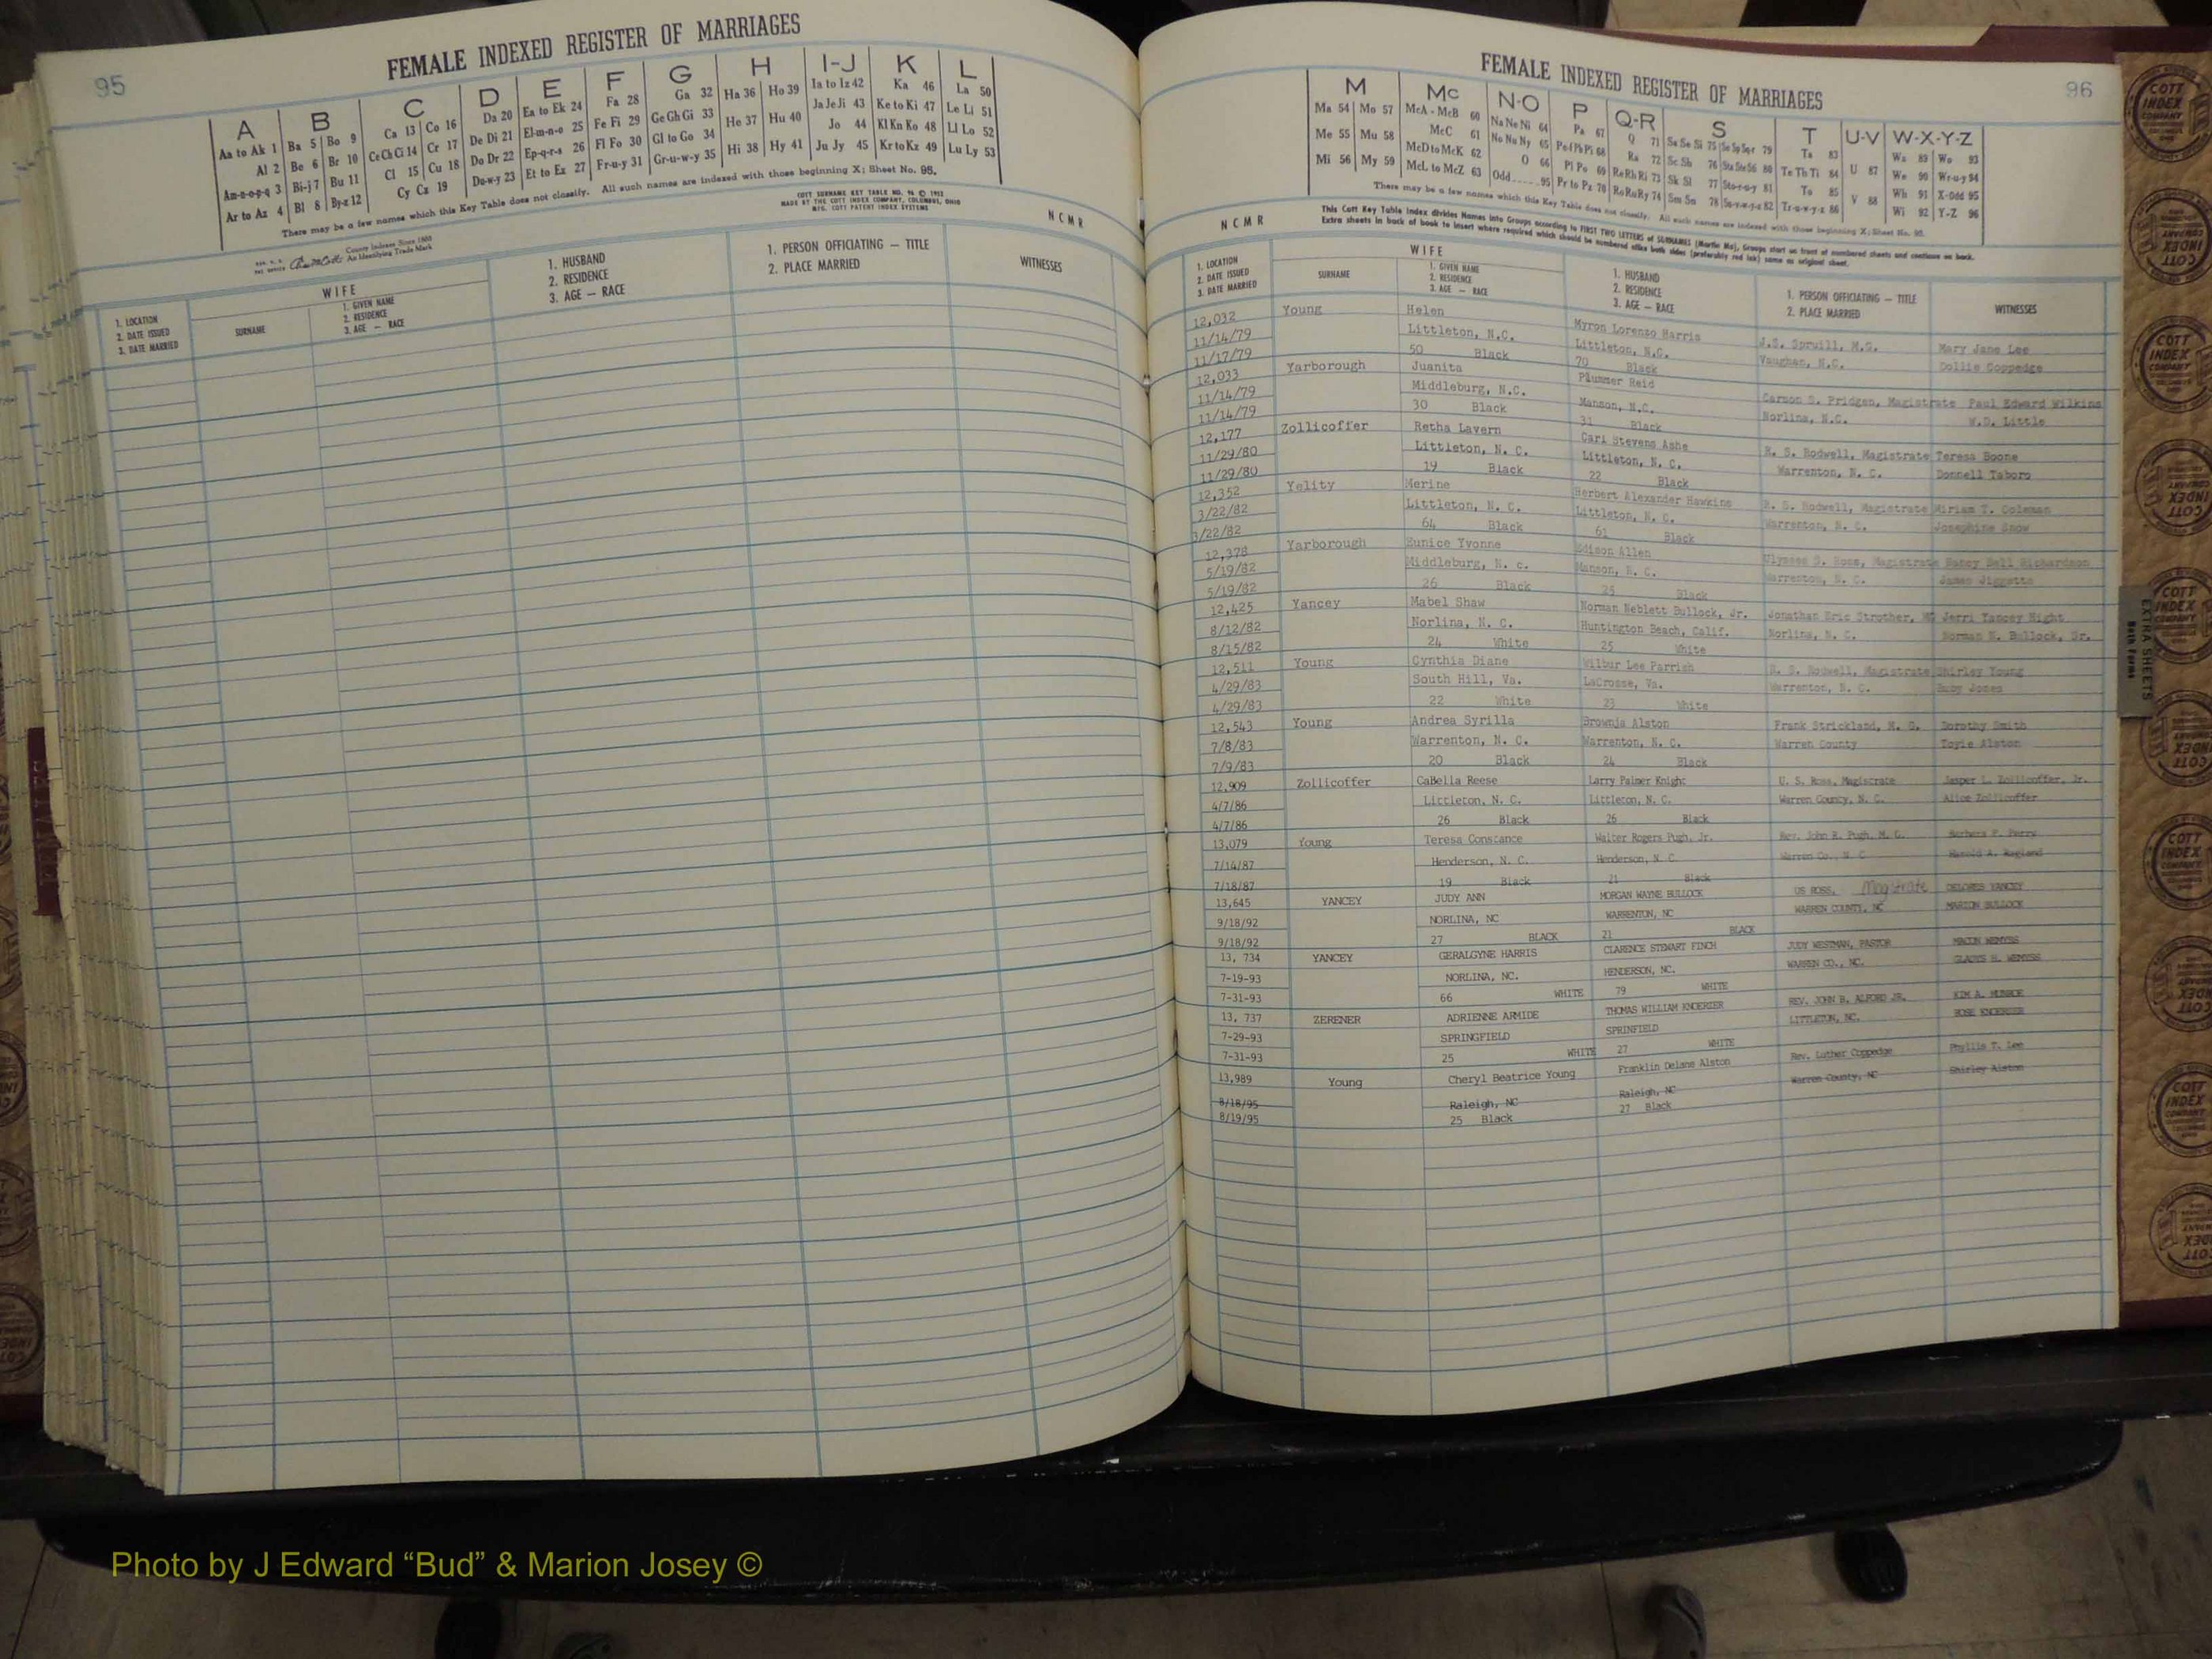 95
FEMALE INDEXED REGISTER OF MARRIAGES
A B C D E F G H I-J K L
Aa to Ak 1 Ba 5 Bo 9 Ca 13 Co 16 Da 20 Ea to Ek 24 Fa 28 Ga 32 Ha 36 Ho 39 Ia to Iz 42 Ka 46 La 50
Al 2 Be 6 Br 10 Ce Ch Ci 14 Cr 17 De Di 21 El-m-n-o 25 Fe Fi 29 Ge Gh Gi 33 He 37 Hu 40 Ja Je Ji 43 Ke to Ki 47 Le Li 51
Am-n-o-p-q 3 Bi-j 7 Bu 11 Cl 15 Cu 18 Do Dr 22 Ep-q-r-s 26 Fl Fo 30 Gl to Go 34 Hi 38 Hy 41 Jo 44 Kl Kn Ko 48 Ll Lo 52
Ar to Az 4 Bl 8 By-z 12 Cy Cz 19 Du-w-y 23 Et to Ex 27 Fr-u-y 31 Gr-u-w-y 35 Ju Jy 45 Kr to Kz 49 Lu Ly 53
There may be a few names which this Key Table does not classify. All such names are indexed with those beginning X; Sheet No. 95.
COTT SURNAME KEY TABLE NO. 96 © 1952
MADE BY THE COTT INDEX COMPANY, COLUMBUS, OHIO
MFG. COTT PATENT INDEX SYSTEMS
NCMR
County Indexes Since 1888
An Identifying Trade Mark
1. LOCATION
2. DATE ISSUED
3. DATE MARRIED
WIFE
SURNAME
1. GIVEN NAME
2. RESIDENCE
3. AGE — RACE
1. HUSBAND
2. RESIDENCE
3. AGE — RACE
1. PERSON OFFICIATING — TITLE
2. PLACE MARRIED
WITNESSES
FEMALE INDEXED REGISTER OF MARRIAGES
96
M Mc N-O P Q-R S T U-V W-X-Y-Z
Ma 54 Mo 57 McA - McB 60 Na Ne Ni 64 Pa 67 Q 71 Sa Se Si 75 Ta 83 Wa 89 Wo 93
Me 55 Mu 58 McC 61 No Nu Ny 65 Pe-f Ph Pi 68 Ra 72 Sc Sh 76 Te Th Ti 84 U 87 We 90 Wr-u-y 94
Mi 56 My 59 McD to McK 62 O 66 Pl Po 69 Re Rh Ri 73 Sk Sl 77 Sto-r-u-y 81 To 85 V 88 Wh 91 X-Odd 95
McL to McZ 63 Odd 95 Pr to Pz 70 Ro Ru Ry 74 Sm Sn 78 Tr-u-w-y-z 86 Wi 92 Y-Z 96
There may be a few names which this Key Table does not classify. All such names are indexed with those beginning X; Sheet No. 95.
This Cott Key Table Index divides Names into Groups according to FIRST TWO LETTERS of SURNAMES (Martin Ma), Groups start on front of numbered sheets and continue on back.
Extra sheets in back of book to insert where required which should be numbered alike both sides (preferably red ink) same as original sheet.
NCMR
1. LOCATION
2. DATE ISSUED
3. DATE MARRIED
WIFE
SURNAME
1. GIVEN NAME
2. RESIDENCE
3. AGE — RACE
1. HUSBAND
2. RESIDENCE
3. AGE — RACE
1. PERSON OFFICIATING — TITLE
2. PLACE MARRIED
WITNESSES
12,032 Young Helen Myron Lorenzo Harris J.S. Spruill, M.G. Mary Jane Lee
11/14/79 Littleton, N.C. Littleton, N.C. Vaughan, N.C. Dollie Coppedge
11/17/79 50 Black 70 Black
12,033 Yarborough Juanita Plummer Reid Carmon S. Pridgen, Magistrate Paul Edward Wilkins
11/14/79 Middleburg, N.C. Manson, N.C. Norlina, N.C. W.D. Little
11/14/79 30 Black 31 Black
12,177 Zollicoffer Retha Lavern Carl Stevens Ashe R. S. Rodwell, Magistrate Teresa Boone
11/29/80 Littleton, N. C. Littleton, N. C. Warrenton, N. C. Donnell Taboro
11/29/80 19 Black 22 Black
12,352 Yelity Merine Herbert Alexander Hawkins R. S. Rodwell, Magistrate Miriam T. Coleman
3/22/82 Littleton, N. C. Littleton, N. C. Warrenton, N. C. Josephine Snow
3/22/82 64 Black 61 Black
12,378 Yarborough Eunice Yvonne Edison Allen Ulysses S. Ross, Magistrate Nancy Bell Richardson
5/19/82 Middleburg, N. c. Manson, N. C. Warrenton, N. C. James Jiggetts
5/19/82 26 Black 25 Black
12,425 Yancey Mabel Shaw Norman Neblett Bullock, Jr. Jonathan Eric Strother, MG Jerri Yancey Hight
8/12/82 Norlina, N. C. Huntington Beach, Calif. Norlina, N. C. Norman N. Bullock, Sr.
8/15/82 24 White 25 White
12,511 Young Cynthia Diane Wilbur Lee Parrish R. S. Rodwell, Magistrate Shirley Young
4/29/83 South Hill, Va. LaCrosse, Va. Warrenton, N. C. Ruby Jones
4/29/83 22 White 23 White
12,543 Young Andrea Syrilla Brownie Alston Frank Strickland, M. G. Dorothy Smith
7/8/83 Warrenton, N. C. Warrenton, N. C. Warren County Toyie Alston
7/9/83 20 Black 24 Black
12,909 Zollicoffer CaBella Reese Larry Palmer Knight U. S. Ross, Magistrate Jasper L. Zollicoffer, Jr.
4/7/86 Littleton, N. C. Littleton, N. C. Warren County, N. C. Alice Zollicoffer
4/7/86 26 Black 26 Black
13,079 Young Teresa Constance Walter Rogers Pugh, Jr. Rev. John R. Pugh, M. G. Barbara P. Perry
7/14/87 Henderson, N. C. Henderson, N. C. Warren Co., N. C Harold A. Ragland
7/18/87 19 Black 21 Black
13,645 YANCEY JUDY ANN MORGAN WAYNE BULLOCK US ROSS, Magistrate DELORES YANCEY
9/18/92 NORLINA, NC WARRENTON, NC WARREN COUNTY, NC MARION BULLOCK
9/18/92 27 BLACK 21 BLACK
13, 734 YANCEY GERALGYNE HARRIS CLARENCE STEWART FINCH JUDY WESTMAN, PASTOR MACON WEMYSS
7-19-93 NORLINA, NC. HENDERSON, NC. WARREN CO., NC. GLADYS H. WEMYSS
7-31-93 66 WHITE 79 WHITE
13, 737 ZERENER ADRIENNE ARMIDE THOMAS WILLIAM KNOERZER REV. JOHN B. ALFORD JR. KIM A. MUNROE
7-29-93 SPRINGFIELD SPRINFIELD LITTLETON, NC. ROSE KNOERZER
7-31-93 25 WHITE 27 WHITE
13,989 Young Cheryl Beatrice Young Franklin Delane Alston Rev. Luther Coppedge Phyllis T. Lee
8/18/95 Raleigh, NC Raleigh, NC Warren County, NC Shirley Alston
8/19/95 25 Black 27 Black
EXTRA SHEETS
Both Forms
COTT INDEX COMPANY
Photo by J Edward “Bud” & Marion Josey ©